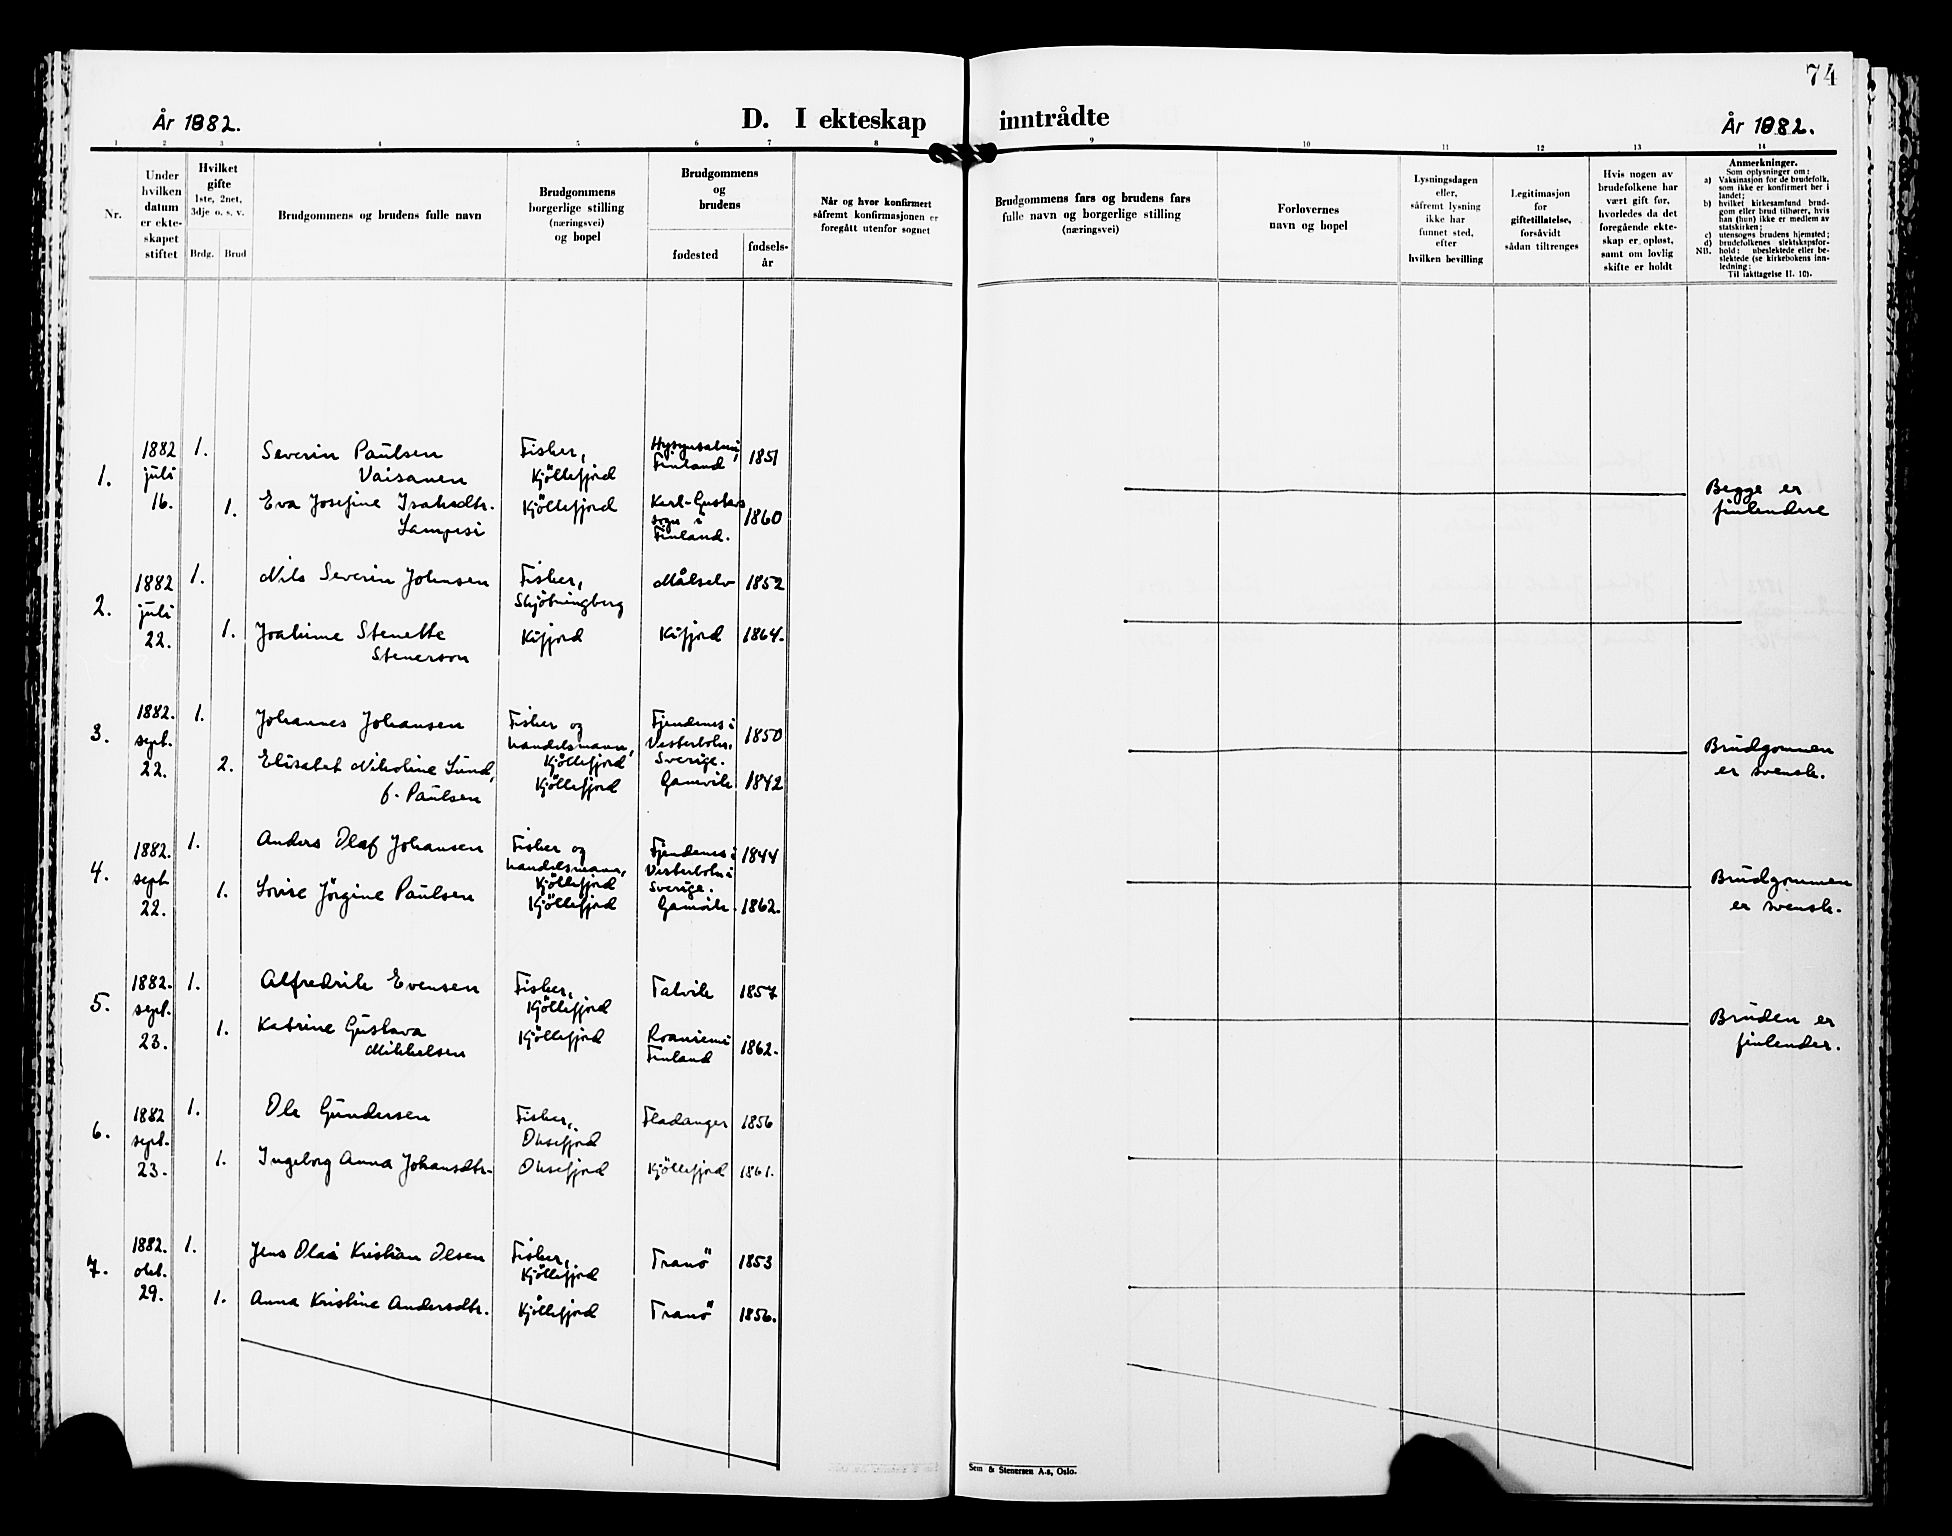 74
År 1882.
D. I ekteskap inntrådte
År 1882.
1 2 3 4 5 6 7 8 9 10 11 12 13 14
Nr.
Under
hvilken
datum
er ekte-
skapet
stiftet
Hvilket
gifte
1ste, 2net,
3dje o. s. v.
Brdg. Brud
Brudgommens og brudens fulle navn
Brudgommens
borgerlige stilling
(næringsvei)
og bopel
Brudgommens
og
brudens
fødested
fødsels-
år
Når og hvor konfirmert
såfremt konfirmasjonen er
foregått utenfor sognet
Brudgommens fars og brudens fars
fulle navn og borgerlige stilling
(næringsvei)
Forlovernes
navn og bopel
Lysningsdagen
eller,
såfremt lysning
ikke har
funnet sted,
efter
hvilken bevilling
Legitimasjon
for
giftetillatelse,
forsåvidt
sådan tiltrenges
Hvis nogen av
brudefolkene har
vært gift før,
hvorledes da det
foregående ekte-
skap er opløst,
samt om lovlig
skifte er holdt
Anmerkninger.
Som oplysninger om:
a) Vaksinasjon for de brudefolk,
som ikke er konfirmert her i
landet;
b) hvilket kirkesamfund brud-
gom eller brud tilhører, hvis
han (hun) ikke er medlem av
statskirken;
c) utensogns brudens hjemsted;
d) brudefolkenes slektskapsfor-
NB. hold: ubeslektede eller be-
slektede (se kirkebokens inn-
ledning:
Til iakttagelse II. 10).
1.
1882
juli
16.
1.
Severin Paulsen
Vaisanen
Fisker,
Kjöllefjord
Finland
1851
1.
Eva Josefine Isaksdtr.
Lampesi
Kjöllefjord
Karl-Gustavs
sogn i
Finland.
1860
Begge er
finlendere
2.
1882
juli
22.
1.
Nils Severin Johnsen
Fisker,
Skjötningberg
Målselv
1852
1.
Joakime Stenette
Stenersen
Kifjord
Kifjord
1864.
3.
1882.
sept.
22.
1.
Johannes Johansen
Fisker og
handelsmann,
Kjöllefjord
Fjendenes i
Vesterboln,
Sverige.
1850
2.
Elisabet Nikoline Lund,
f. Paulsen
Kjöllefjord
Gamvik
1842
Brudgommen
er svensk.
4.
1882.
sept.
22.
1.
Anders Olaf Johansen
Fisker og
handelsmann,
Kjöllefjord
Fjendenes i
Vesterboln i
Sverige.
1844
1.
Lovise Jörgine Paulsen
Kjöllefjord
Gamvik.
1862.
Brudgommen
er svensk.
5.
1882.
sept.
23.
1.
Alfredrik Evensen
Fisker,
Kjöllefjord
Talvik
1857
1.
Katrine Gustava
Mikkelsen
Kjöllefjord
Finland
1862.
Bruden er
finlender.
6.
1882
sept.
23.
1.
Ole Gundersen
Fisker,
Oksefjord
Fladanger
1856
1.
Ingeborg Anna Johansdtr.
Oksefjord
Kjöllefjord
1861.
7.
1882.
okt.
29.
1.
Jens Olai Kristian Olsen
Fisker,
Kjöllefjord
Tranö
1853
1.
Anna Kristine Andersdtr.
Kjöllefjord
Tranö
1856.
Sem & Stenersen A.s, Oslo.